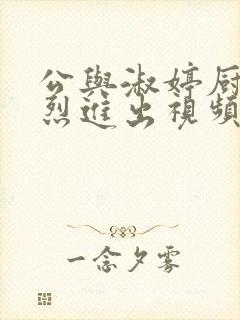 公與淑婷厨
烈進出視頻
一念夕雾